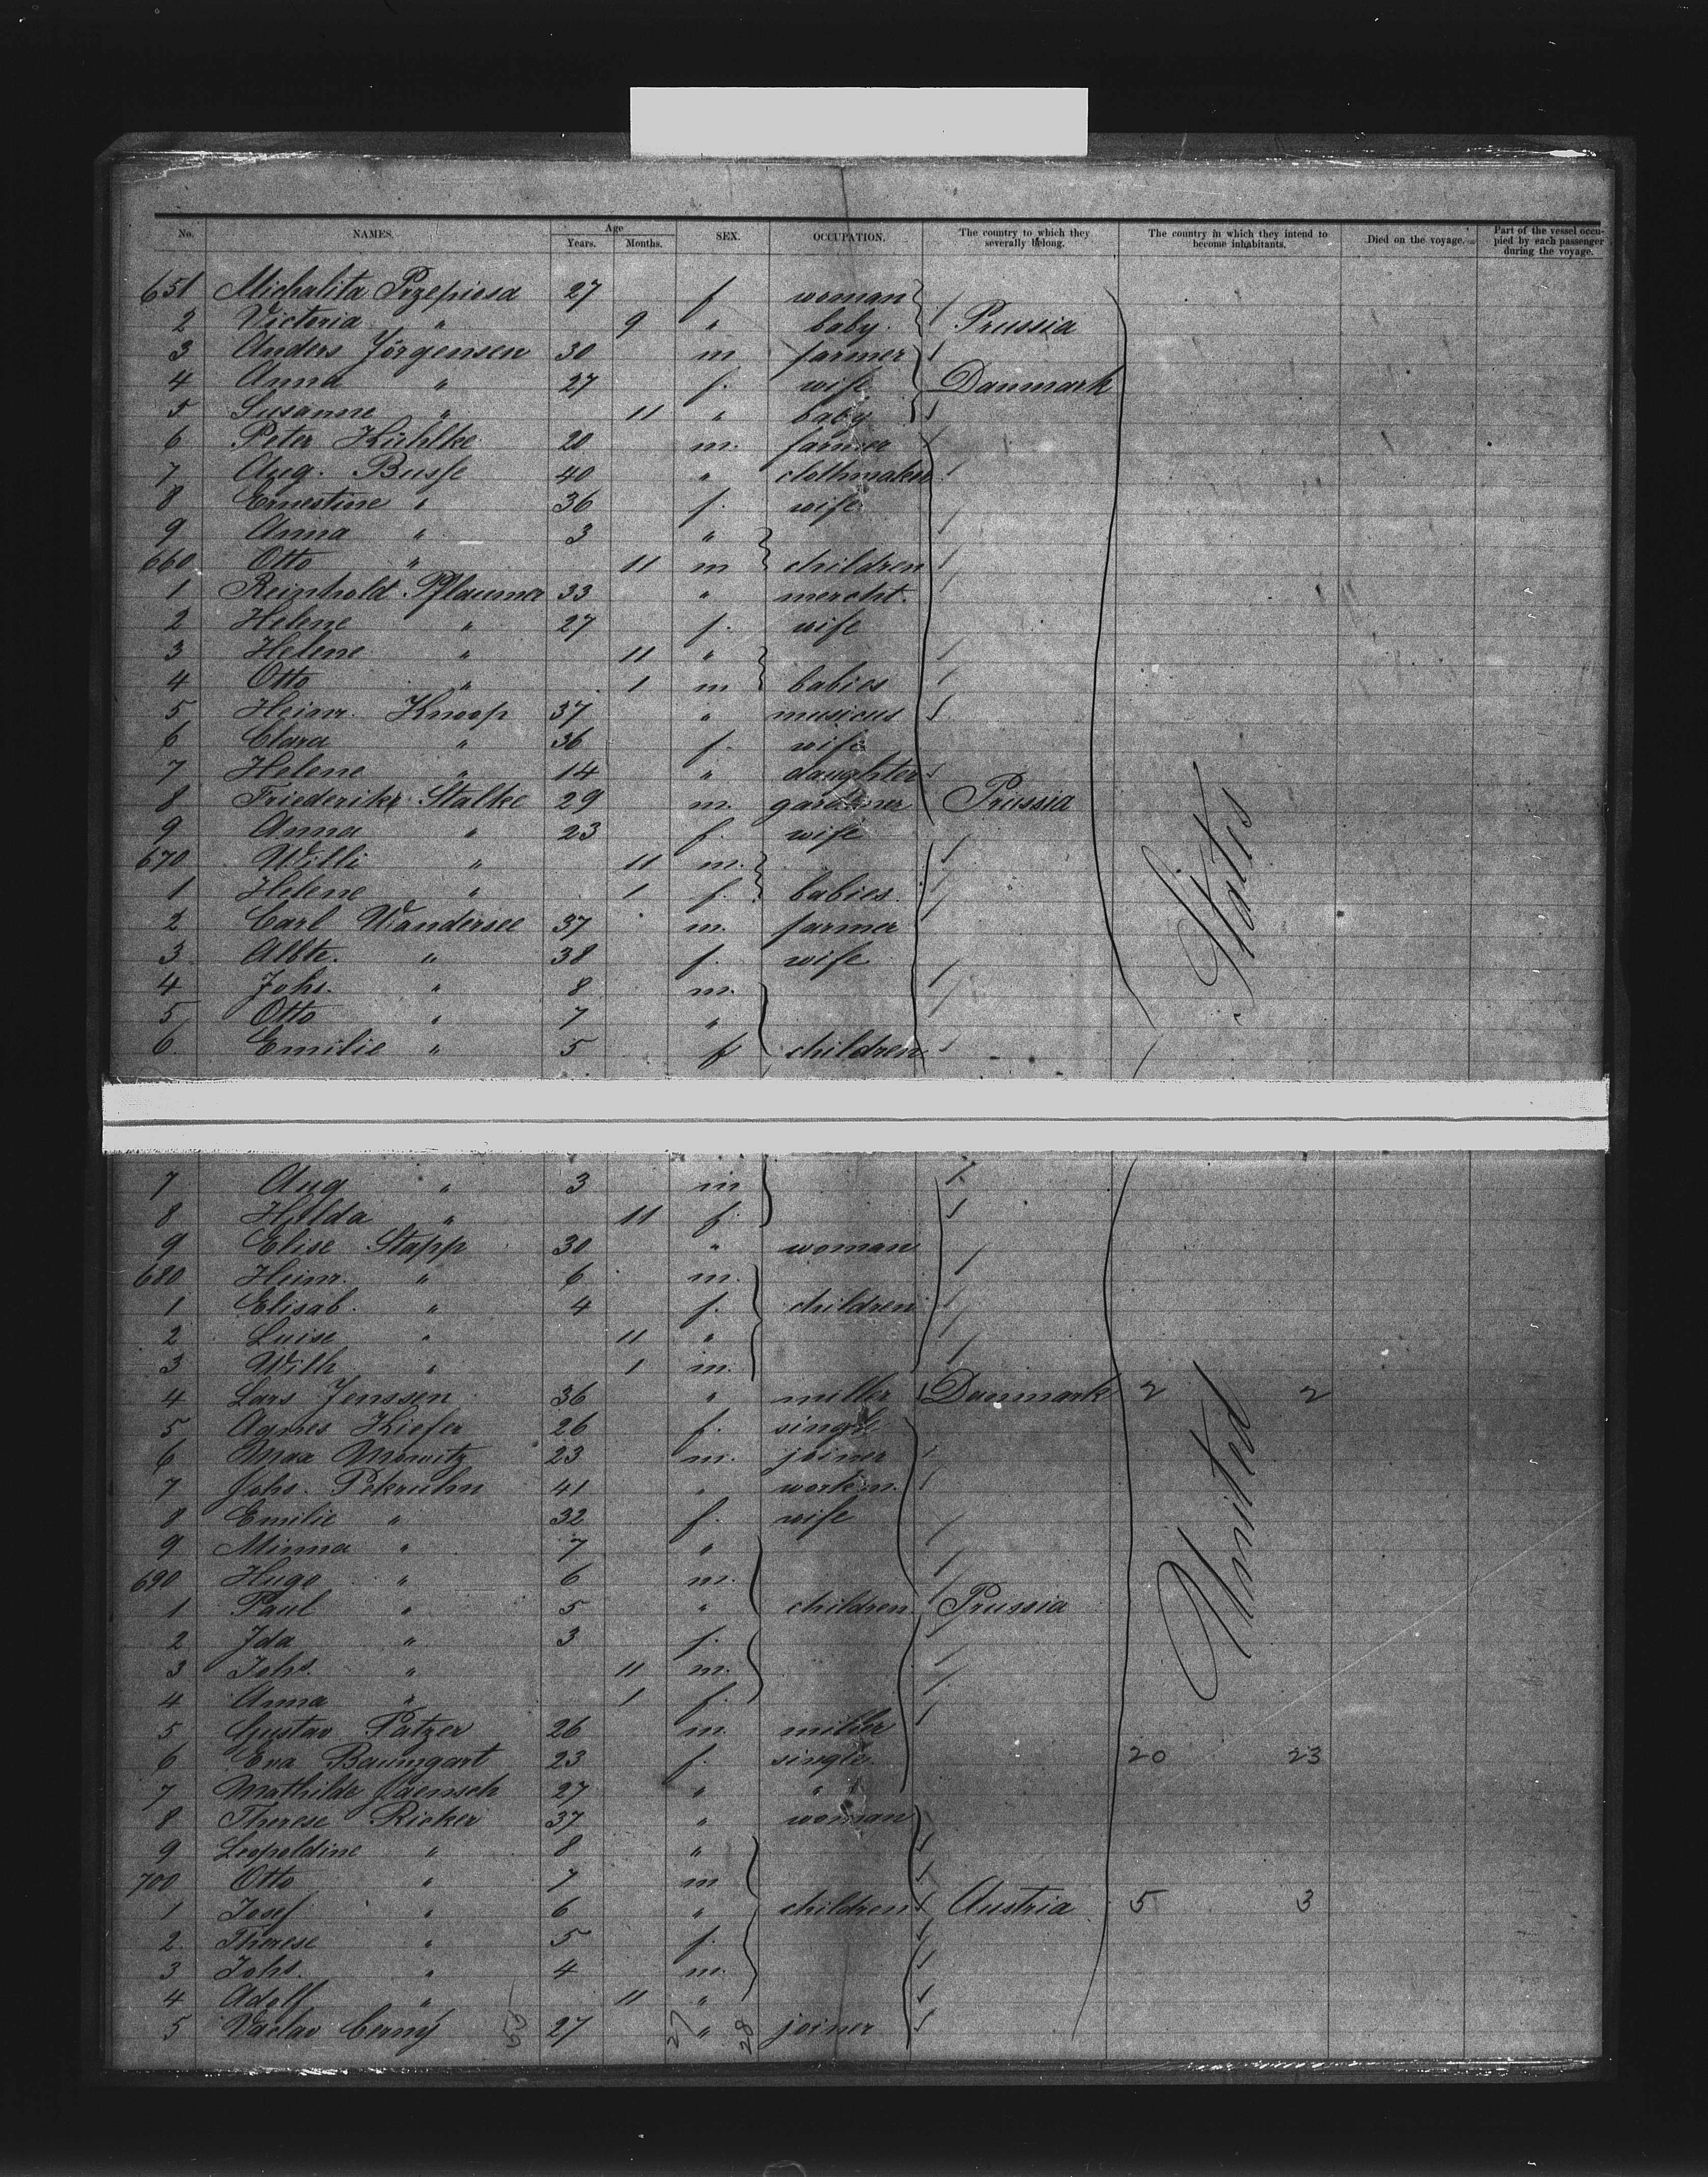 No. NAMES. Age Years. Months. SEX. OCCUPATION. The country to which they severally belong. The country in which they intend to become inhabitants. Died on the voyage. Part of the vessel occupied by each passenger during the voyage.
651 Michalita Przepiosa 27 f woman
2 Victoria " 9 " baby Prussia
3 Anders Jörgensen 30 m farmer
4 Anna " 27 f. wife Danmark
5 Susanne " 11 " baby
6 Peter Kühlke 20 m. farmer
7 Aug. Busse 40 " clothmaker
8 Ernestine " 36 f. wife
9 Anna " 3 "
660 Otto " 11 m children
1 Reinhold Pflaumer 33 " mercht.
2 Helene " 27 f. wife
3 Helene " 11 "
4 Otto " 1 m babies
5 Heinr. Knoop 37 " musicus
6 Clara " 36 f. wife
7 Helene " 14 " daughter
8 Friederike Stalke 29 m. gardener Prussia
9 Anna " 23 f. wife
670 Willi " 11 m.
1 Helene " 1 f. babies
2 Carl Wandersee 37 m. farmer
3 Albte. " 38 f. wife
4 Johs. " 8 m.
5 Otto " 7 "
6 Emilie " 5 f children
States
7 Aug " 3 m
8 Hulda " 11 f.
9 Elise Stapp 30 " woman
680 Heinr. " 6 m.
1 Elisab. " 4 f. children
2 Luise " 11 "
3 Wilh " 1 m.
4 Lars Jenssen 36 " miller Danmark 2 2
5 Agnes Kiefer 26 f. single
6 Max Morwitz 23 m. joiner
7 Johs. Pekruhn 41 " workm.
8 Emilie " 32 f. wife
9 Minna " 7 "
690 Hugo " 6 m.
1 Paul " 5 " children Prussia
2 Ida " 3 f.
3 Johs. " 11 m.
4 Anna " 1 f.
United
5 Gustav Patzer 26 m. miller
6 Eva Baumgart 23 f. single 20 23
7 Mathilde Jaensch 27 " "
8 Therese Ricker 37 " woman
9 Leopoldine " 8 "
700 Otto " 7 m
1 Josef " 6 " children Austria 5 3
2 Therese " 5 f.
3 Johs. " 4 m.
4 Adolf " 11 "
5 Vaclav Cerný 55 27 27 " 28 joiner